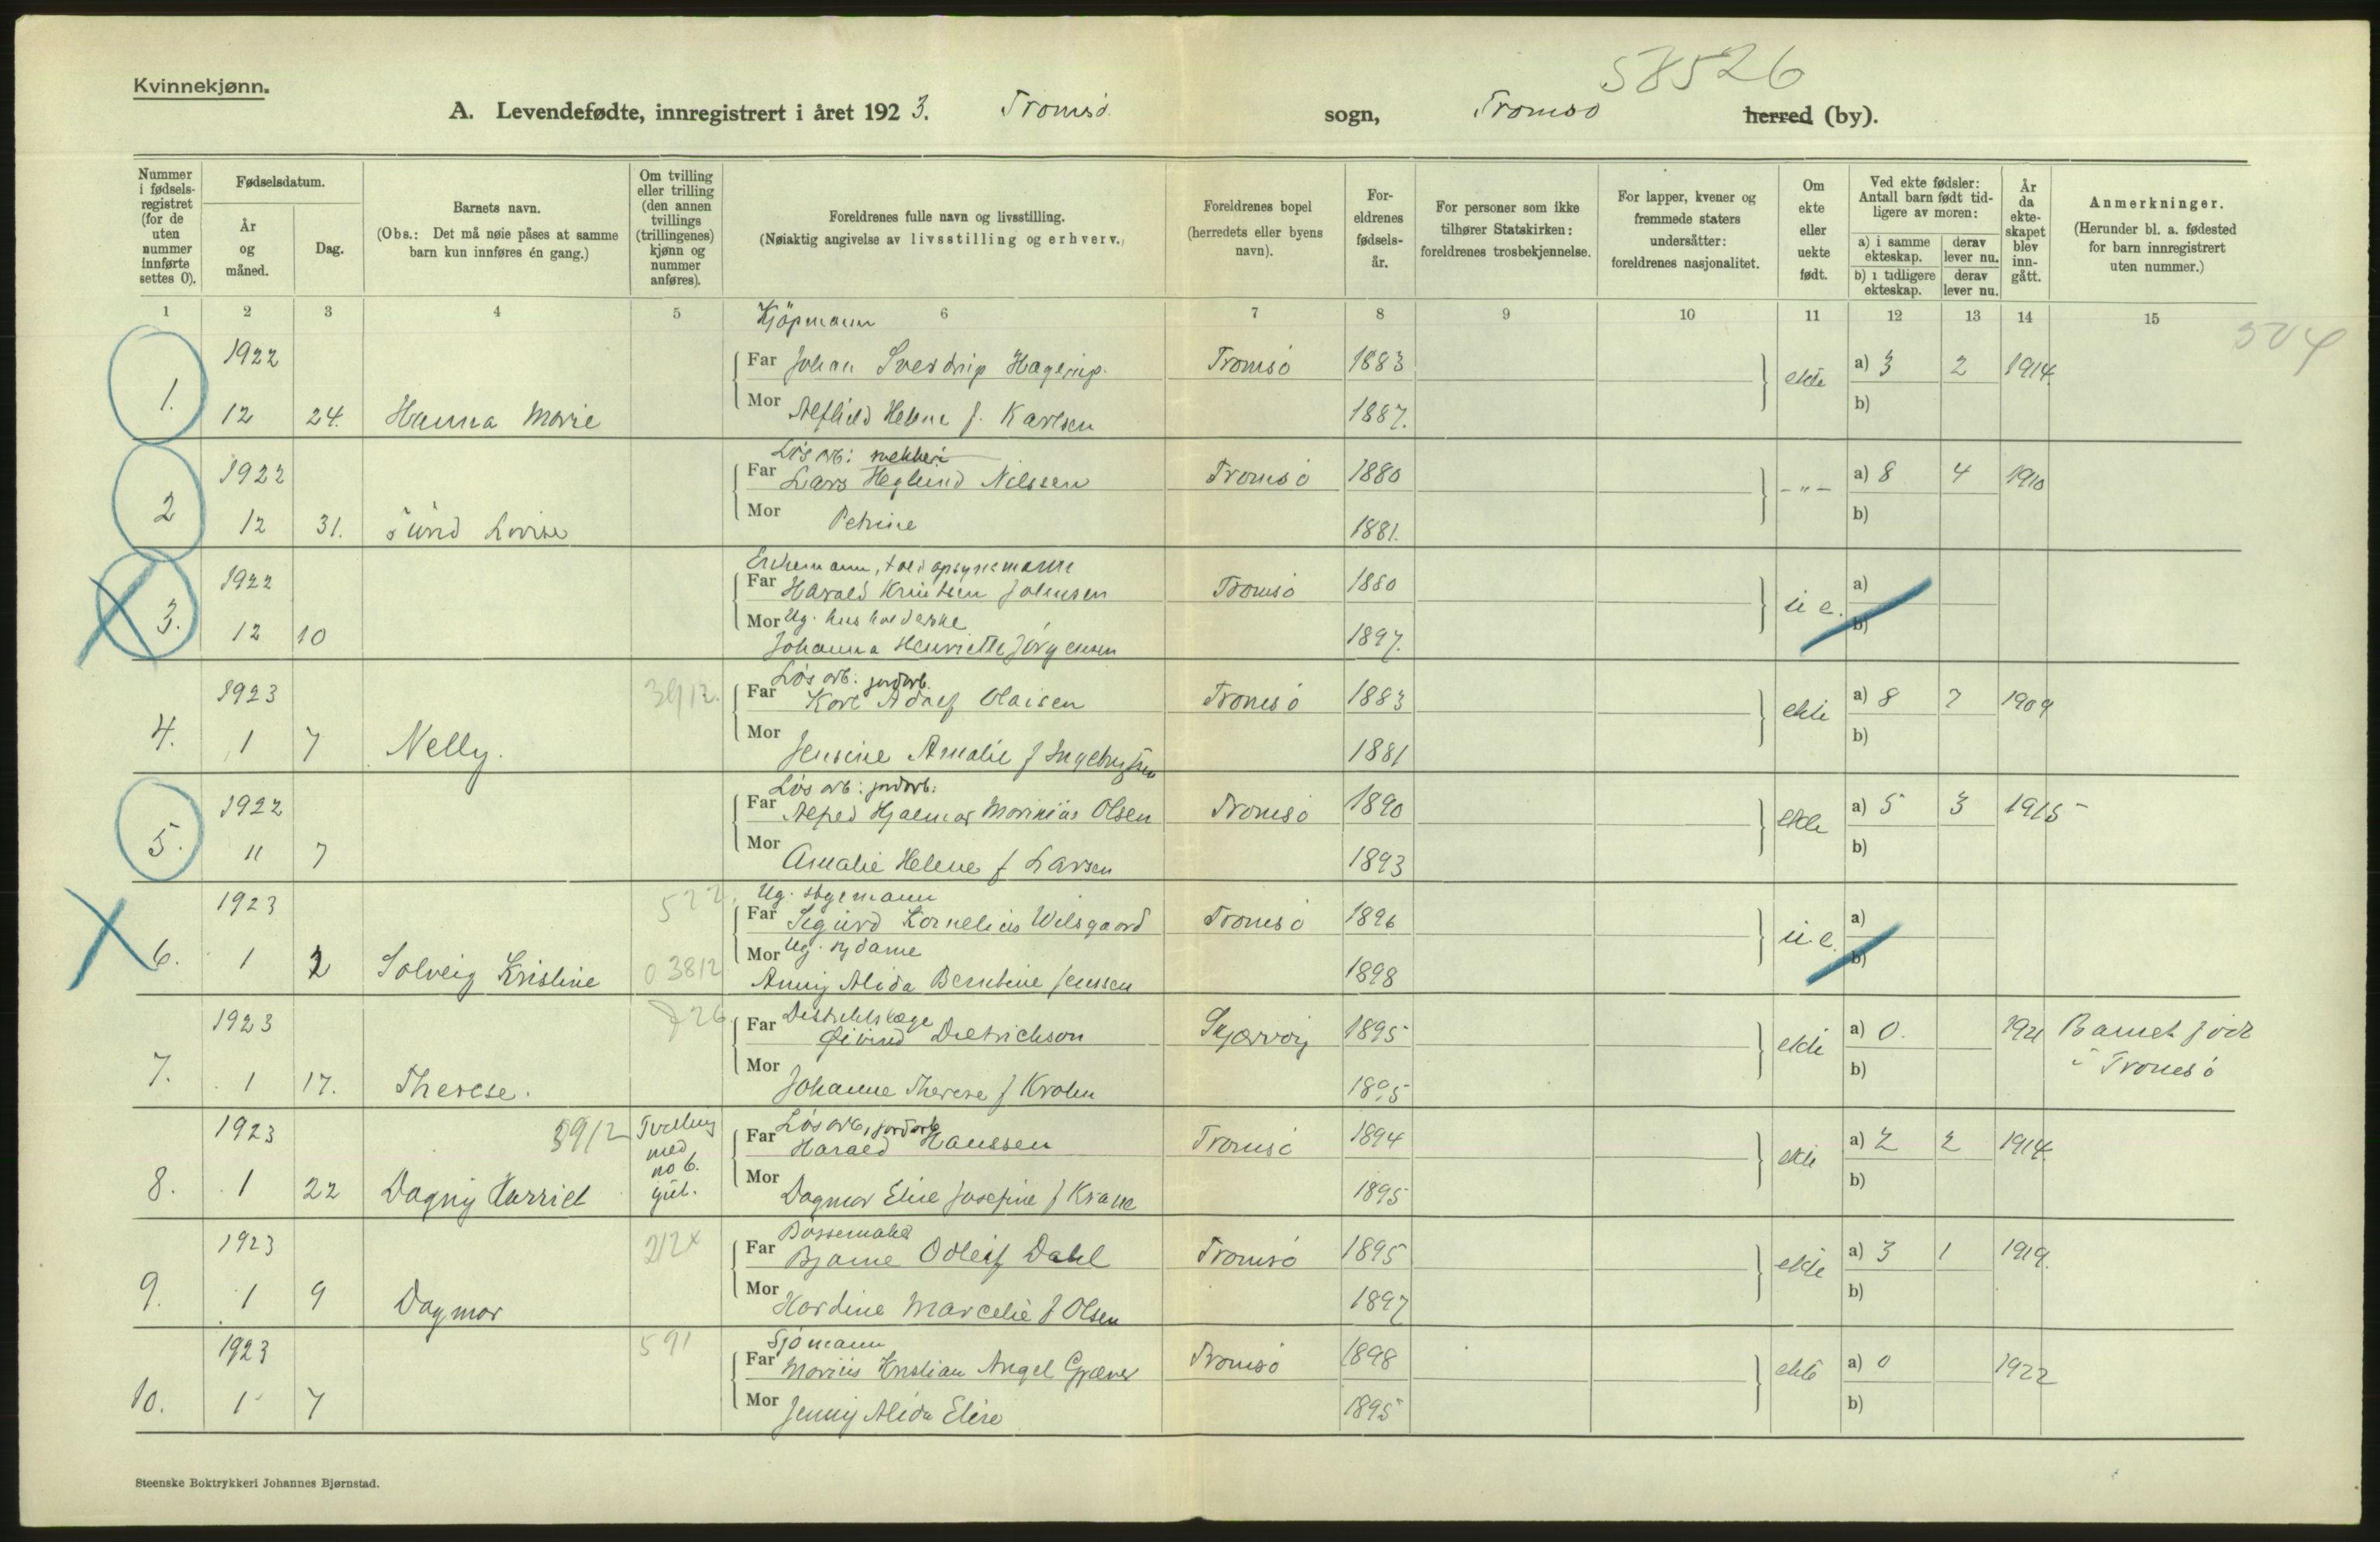 58526
Kvinnekjønn.
A. Levendefødte, innregistrert i året 1923. Tromsø sogn, Tromsø herred (by).
Nummer i fødsels-registret (for de uten nummer innførte settes 0).
Fødselsdatum.
År og måned.
Dag.
Barnets navn.
(Obs.: Det må nøie påses at samme barn kun innføres én gang.)
Om tvilling eller trilling (den annen tvillings (trillingenes) kjønn og nummer anføres).
Foreldrenes fulle navn og livsstilling.
(Nøiaktig angivelse av livsstilling og erhverv.)
Foreldrenes bopel (herredets eller byens navn).
For-eldrenes fødsels-år.
For personer som ikke tilhører Statskirken: foreldrenes trosbekjennelse.
For lapper, kvener og fremmede staters undersåtter: foreldrenes nasjonalitet.
Om ekte eller uekte født.
Ved ekte fødsler: Antall barn født tid-ligere av moren:
a) i samme ekteskap.
derav lever nu.
b) i tidligere ekteskap.
derav lever nu.
År da ekte-skapet blev inn-gått.
Anmerkninger.
(Herunder bl. a. fødested for barn innregistrert uten nummer.)
1 2 3 4 5 6 7 8 9 10 11 12 13 14 15
504
Kjöpmann
1922 Far Johan Sverdrup Hagerup. Tromsø 1883 ekte a) 3 2 1914.
1. 12 24. Hanna Marie Mor Alfhild Helene f. Karlsen 1887. b)
Løs arb:
1922 Far Lars Heglund Nilssen Tromsø 1880 -"- a) 8 4 1910
2 12 31. Lovise Mor Petrine 1881. b)
Enkemann, toldopsynsmann
1922 Far Harald Knutsen Johnsen Tromsø 1880 u.e. a)
3. 12 10 Mor Ug. husholderske b)
Johanna Henriette Jørgensen 1897.
Løs arb: jordarb.
1923 Far Karl Adolf Olaisen Tromsø 1883 ekte a) 8 7 1909
4. 1 7 Nelly. Mor Jensine Amalie f Ingebrigtsen 1881 b)
Løs arb: jordarb:
1922 Far Alfred Hjalmar Marinius Olsen Tromsø 1890 ekte a) 5 3 1915
5. 11 7 Mor Amalie Helene f Larsen 1893 b)
Ug. styrmann
1923 522. Far Sigurd Kornelius Wilsgaard Tromsø 1896 u.e. a)
6. 1 2 Solveig Kristine 03812 Mor Ug. sydame b)
Anny Alida Berntine Jenssen 1898
Distriktslæge
1923 726. Far Øivind Dietrichson Skjærvøy 1895 ekte a) 0. 1921 Barnet født
7. 1 17. Therese. Mor Johanne Therese f Krohn 1895 b) i Tromsø
Løsarb, jordarb
1923 3912 Tvilling med no 6. gut. Far Harald Hanssen Tromsø 1894 ekte a) 2 2 1914.
8. 1 22 Dagny Harriet Mor Dagmar Elise Josefine f Krane 1895 b)
Bøssemaker
1923 212x Far Bjarne Odleif Dahl Tromsø 1895 ekte a) 3 1 1919.
9. 1 9 Dagmar Mor Hardine Marcelie f Olsen 1897 b)
Sjömann
1923 591 Far Marius Kristian Angel Græner Tromsø 1898 ekte a) 0 1922
10. 1 7 Mor Jenny Alida Elise 1895 b)
Steenske Boktrykkeri Johannes Bjørnstad.